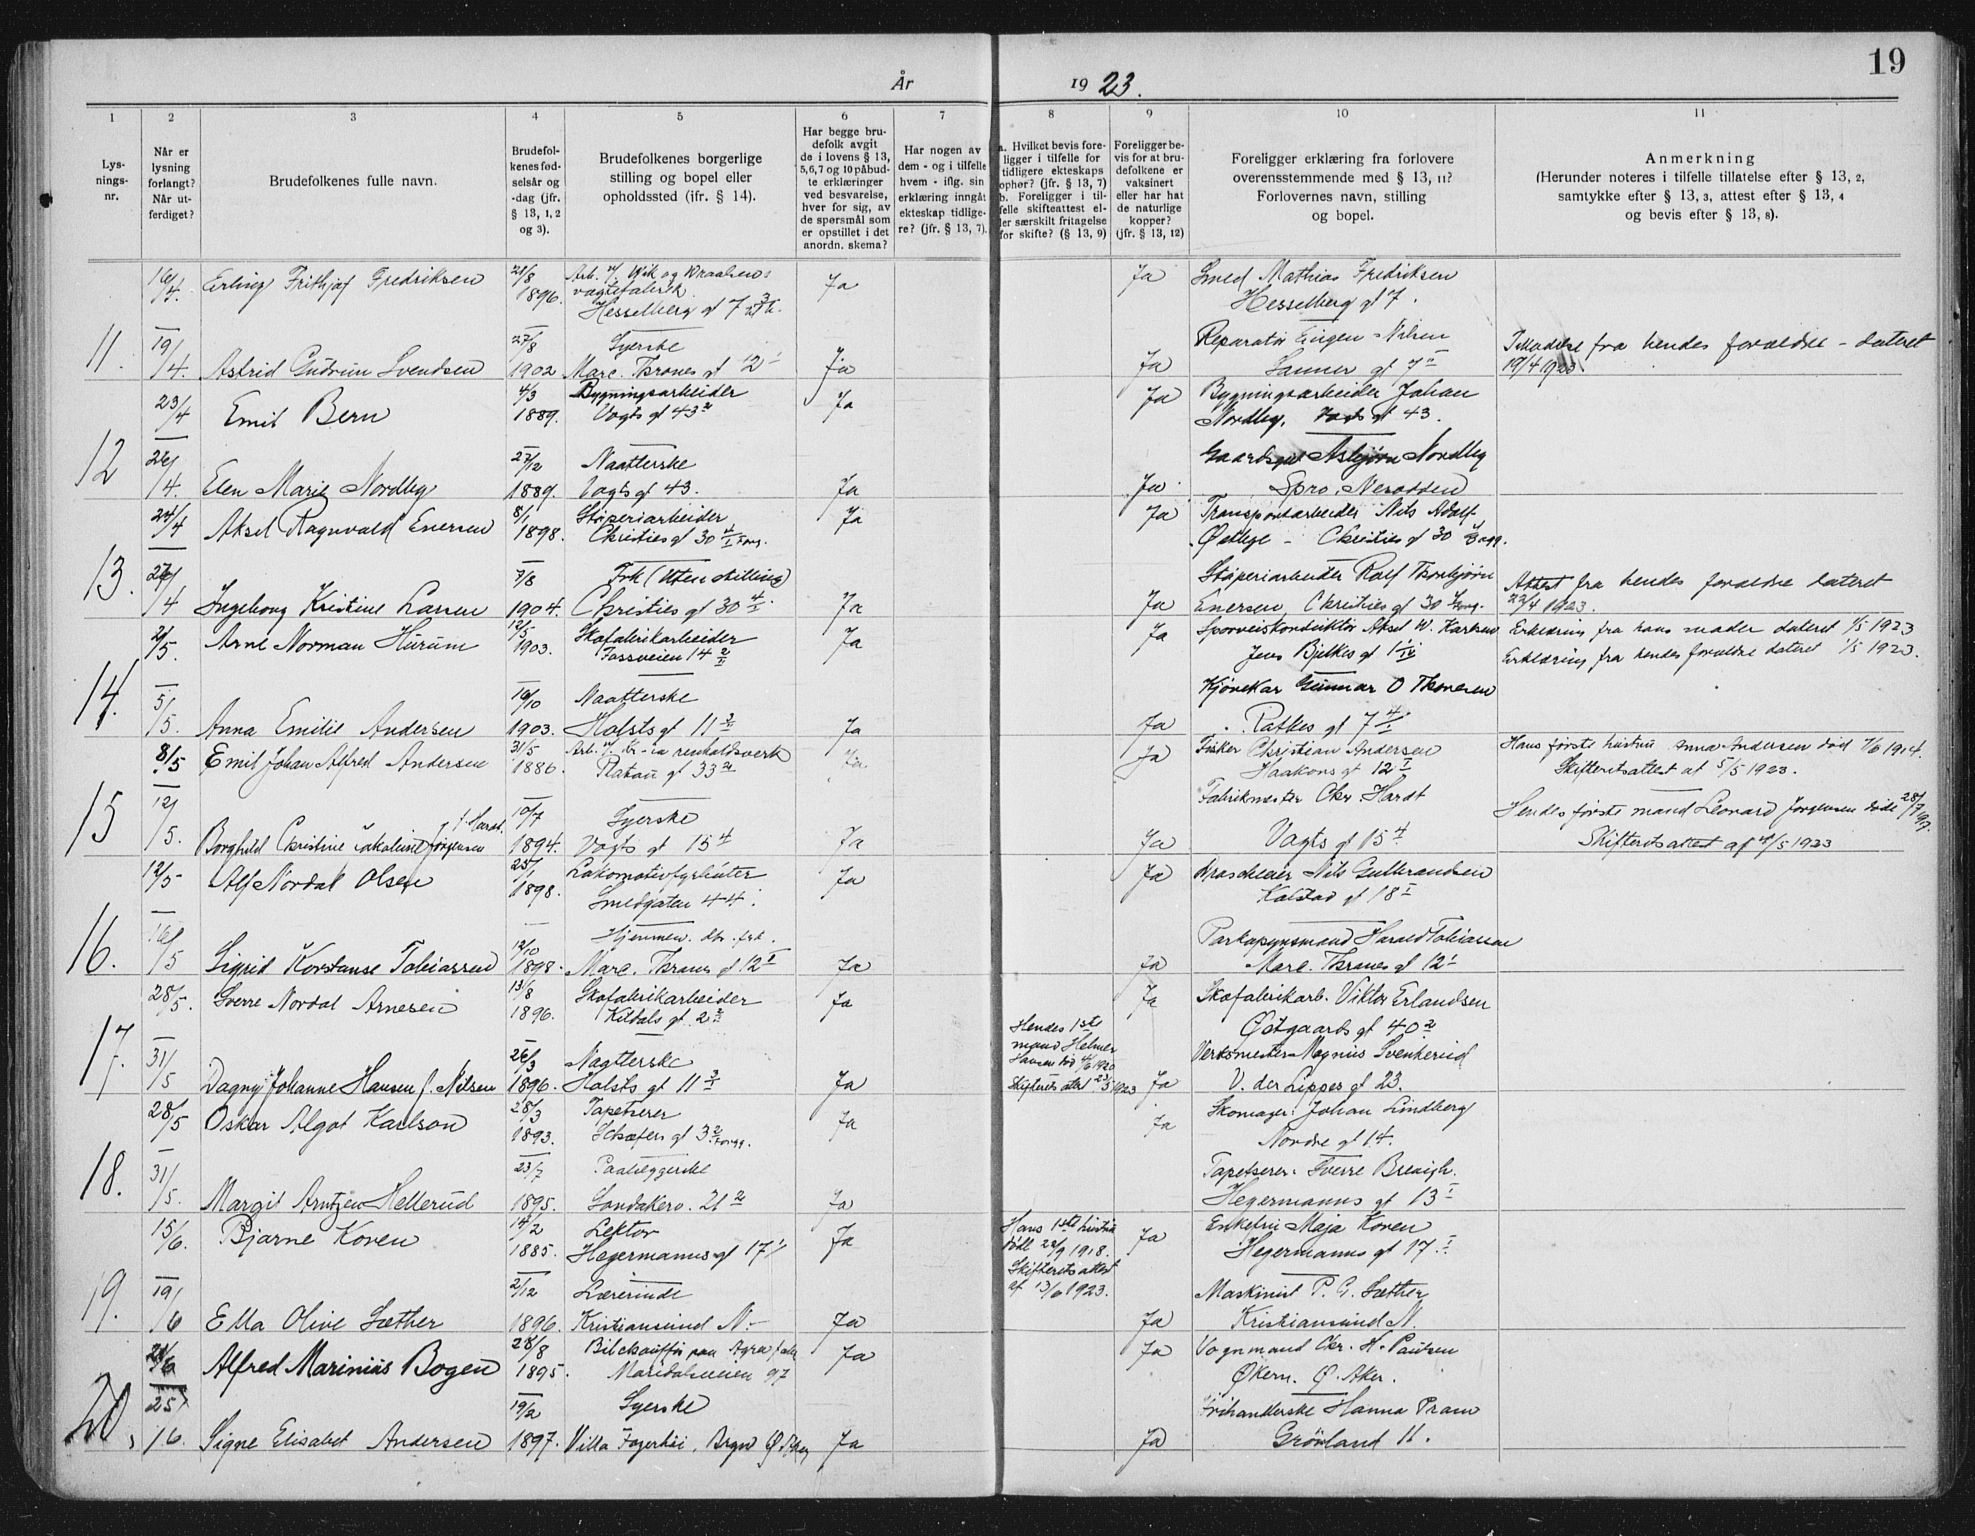 19
År
19 23.
1 2 3 4 5 6 7 8 9 10 11
Lysningsnr.
Når er lysning forlangt? Når utferdiget?
Brudefolkenes fulle navn.
Brudefolkenes fødselsår og -dag (jfr. § 13, 1, 2 og 3).
Brudefolkenes borgerlige stilling og bopel eller opholdssted (jfr. § 14).
Har begge brudefolk avgit de i lovens § 13, 5,6,7 og 10 påbudte erklæringer ved besvarelse, hver for sig, av de spørsmål som er opstillet i det anordn. skema?
Har nogen av dem - og i tilfelle hvem - iflg. sin erklæring inngåt ekteskap tidligere? (jfr. § 13, 7).
a. Hvilket bevis foreligger i tilfelle for tidligere ekteskaps ophør? (jfr. § 13, 7) b. Foreligger i tilfelle skifteattest eller særskilt fritagelse for skifte? (§ 13, 9)
Foreligger bevis for at brudefolkene er vaksinert eller har hat de naturlige kopper? (jfr. § 13, 12)
Foreligger erklæring fra forlovere overensstemmende med § 13, 11? Forlovernes navn, stilling og bopel.
Anmerkning (Herunder noteres i tilfelle tillatelse efter § 13, 2, samtykke efter § 13, 3, attest efter § 13, 4 og bevis efter § 13, 8).
11. 16/4. Erling Frithjof Fredriksen 21/8 1896. Hesselberg gt 7 Ja Ja Smed Mathias Fredriksen
Hesselberg gt 7.
19/4. Astrid Gudrun Svendsen 27/8 1902 Syerske
Marc. Thranes gt 12 Ja Ja Reparatør Eugen Nilsen
Sanner gt 7 fra hendes forældre - dateret
19/4 1923
12 23/4 Emil Bern 4/3 1889. Bygningsarbeider
Vogts gt 43 2 Ja Ja Bygningsarbeider Johan
Nordby, Vogts gt 43.
26/4. Elen Marie Nordby 27/12 1889. Naatlerske
Vogts gt 43. Ja Ja Asbjørn Nordby
Spro, Nesodden
13. 24/4 Aksel Ragnvald Enersen 8/1 1898. Støperiarbeider
Christies gt 30 Ja Ja Transportarbeider Nils Adolf
Christies gt 30
26/4 Ingeborg Kristine Larsen 7/8 1904. Frk (Uten stilling)
Christies gt 30 4/I Ja Ja Støperiarbeider Rolf Thorbjørn
Enersen, Christies gt 30 Attest fra hendes forældre dateret
22/4 1923.
14. 2/5. Arne Norman Hurum 12/5 1903. Skofabrikarbeider
Fossveien 14 Ja Ja Sporveiskonduktør Aksel W. Karlsen
Jens Bjelkes gt 1 Erklæring fra hans moder dateret 1/5 1923
Erklæring fra hendes forældre dateret 1/5 1923.
5/5. Anna Emilie Andersen 19/10 1903. Naatlerske
Holsts gt 11 Ja Ja Gunnar O Thoresen
Ratkes gt 7
15 8/5 Emil Johan Alfred Andersen 31/5 1886. Arb. v. Kr-ia renholdsverk
gt 33 Ja Ja Fisker Christian Andersen
Haakons gt 12 I Hans første hustru Anna Andersen død 7/6 1914.
Skifteretsattest af 5/5 1923.
12/5. Borghild Christine Jakobine Jørgensen f. Hardt. 10/7 1894. Syerske
Vogts gt 15 4 Ja Ja Fabrikmester Chr. Hardt
Vogts gt 15 4 Hendes første mand Leonard Jørgensen døde 28/7 1917.
Skifteretsattest af /5 1923
16. 12/5 Alf Nordal Olsen 25/1 1898. Lokomotivfyrbøter
Smedgaten 44. Ja Ja Nils Gulbrandsen
Kalstad gt 18 I
16/5 Sigrid Konstanse Tobiassen 12/10 1898. Hjemmev. dtr. frk.
Marc. Thranes gt 12 I Ja Ja Harald Tobiassen
Marc. Thranes gt 12
17. 28/5. Sverre Nordal Arnesen 13/8 1896. Skofabrikarbeider
Kildals gt. 2 Ja Ja Skofabrikarb. Viktor Erlandsen
Østgaards gt 40 2
31/5 Dagny Johanne Hansen f. Nilsen 26/3 1896. Naatlerske
Holsts gt 11 Ja Hendes 1ste
mand Helmer
Hansen død 4/6 1920
Skifterets attest 23/5 1923 Ja Verksmester Magnus Svenkerud
V. der Lippes gt 23.
18. 28/5 Oskar Algot Karlson 28/3 1893. Tapetserer
Schæfers gt 3 2 Forgg. Ja Ja Skomager Johan Lindberg
Nordre gt 14.
31/5. Margit Arntzen Hellerud 23/7 1895. Paalæggerske
Sandakerv. 21 2 Ja Tapetserer Sverre Breigh.
Hegermanns gt 13 I
19. 15/6. Bjarne Koren 14/2 1885. Lektor
Hegermanns gt 17 Ja Hans 1ste hustru
død 22/9 1918.
Skifterets attest
af 13/6 1923. Ja Enkefru Maja Koren
Hegermanns gt 17 I
19/6 Ella Olive Sæther 2/12 1896. Lærerinde
Kristiansund N. Ja Ja Maskinist P. G. Sæther
Kristiansund N.
20 21/6 Alfred Marinius Bogen 28/8 1895. Bilchauffør paa Agra fabr
Maridalsveien 97 Ja Ja Vognmand Chr. H. Paulsen
Økern. Ø. Aker.
25/6. Signe Elisabet Andersen 19/2 1897. Syerske
Villa Fagerhøi, Bryn Ø. Aker Ja Ja Frihandlerske Hanna Pram
Grønland 11.